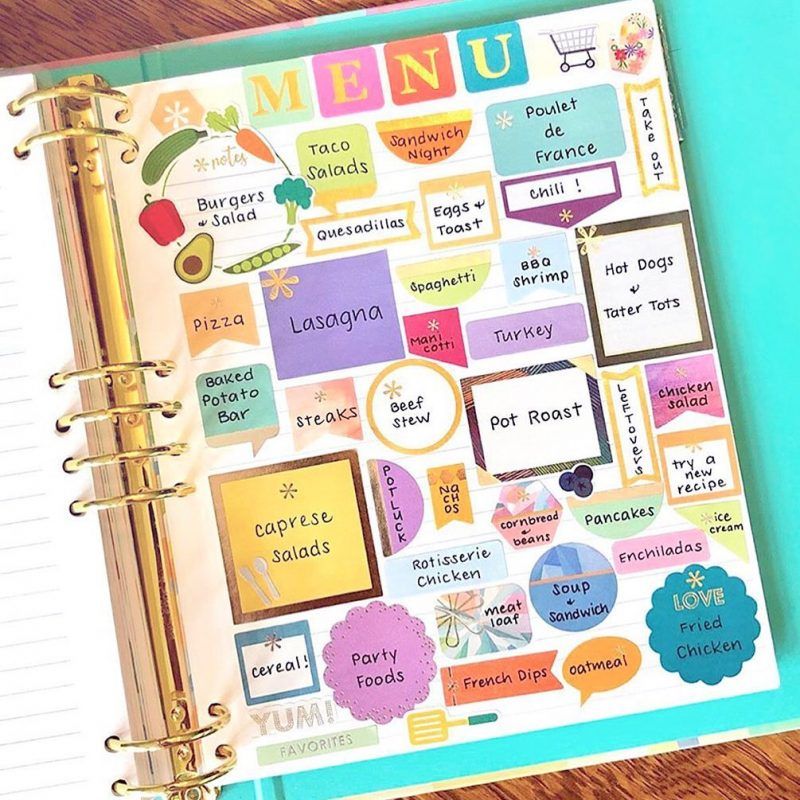 MENU
notes
Burgers
& Salad
Taco
Salads
Sandwich
Night
Poulet
de
France
Take out
Quesadillas
Eggs &
Toast
Chili !
Pizza
Lasagna
Spaghetti
BBQ
shrimp
Hot Dogs
&
Tater Tots
Mani
cotti
Turkey
Baked
Potato
Bar
Steaks
Beef
stew
Pot Roast
Leftovers
chicken
salad
try a
new
recipe
caprese
Salads
Potluck
NA
CH
OS
cornbread
& beans
Pancakes
ice
cream
Rotisserie
Chicken
Enchiladas
meat
loaf
Soup
&
Sandwich
LOVE
Fried
Chicken
cereal!
Party
Foods
French Dips
oatmeal
YUM!
FAVORITES